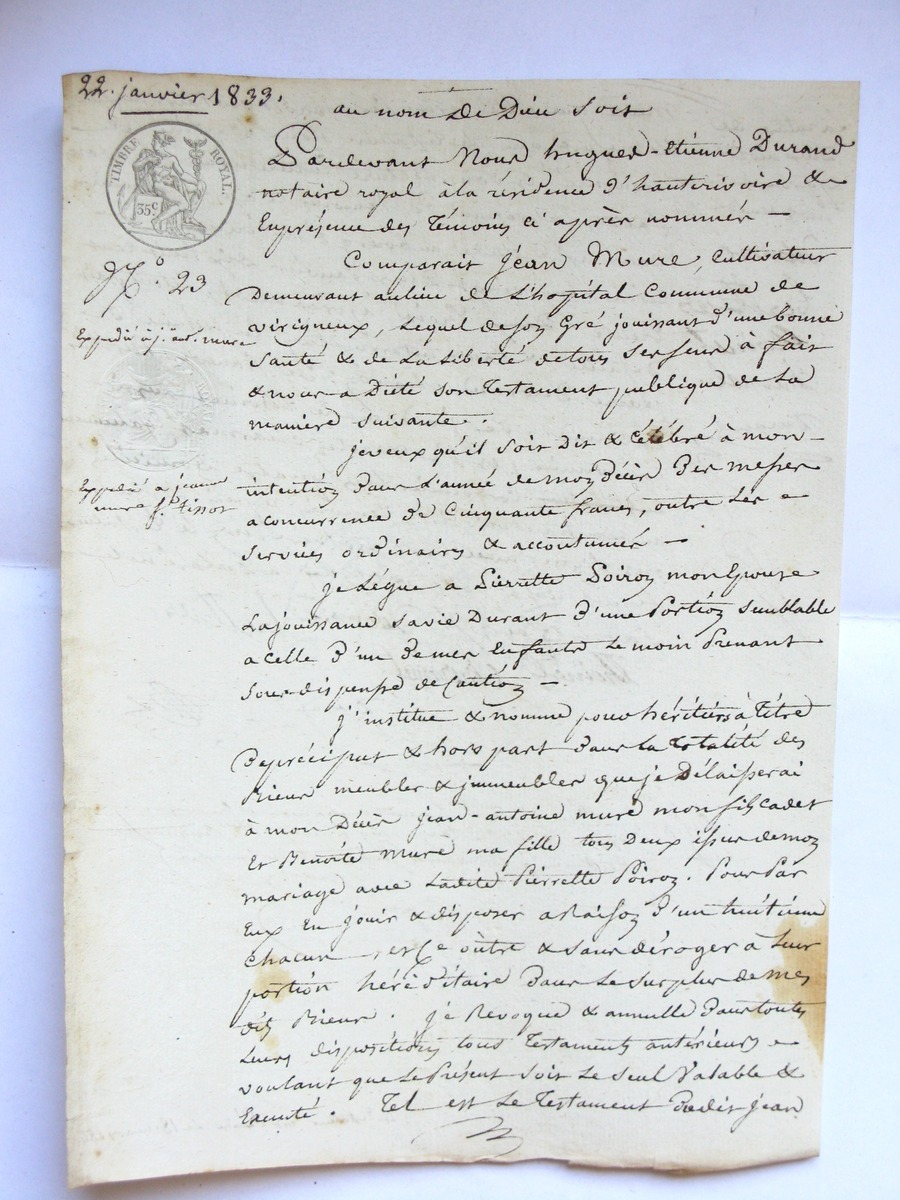 22. janvier 1833.
au nom de Dieu soit
TIMBRE ROYAL.
35 c
Pardevant Nous hugues-Etienne Durand
notaire royal à la résidence d'hauterivoire &
En présence des Témoins ci après nommés —
N.° 23
Comparait jean Mure, cultivateur
Demeurant au lieu de L'hopital Commune de
virigneux, Lequel de son Gré jouissant d'une bonne
Expedié à j. ant. mure
Santé & de La Liberté de tous ses sens à fait
& nous a Dicté son Testament publique de La
maniere suivante.
je veux qu'il soit Dit & célébré à mon
intention Dans L'année de mon Décès Des messes
Expedié a jeanne
mure f.e Tissot
a concurrence de Cinquante francs, outre Les
services ordinaires & accoutumés —
je Légue a Pierrette Poiron mon Epouse
La jouissance sa vie Durant D'une Portion semblable
a celle D'un De mes Enfants Le moin Prenant
Sous dispense de Caution —
j'institue & nomme pour héritiers à Titre
De préciput & hors part Dans La Totalité des
Biens meubles & immeubles que je Délaisserai
à mon Décès jean-antoine mure mon fils cadet
Et Benoite mure ma fille tous Deux issus de mon
mariage avec Ladite Pierrette Poiron. Pour Par
Eux En jouir & disposer a Raison D'un huitième
chacun, et ce outre & sans déroger à Leur
portion héréditaire Dans Le surplus de mes
dits Biens. je Revoque & annulle Dans toutes
Leurs dispositions tous Testaments antérieurs
voulant que Le Présent soit Le seul Valable &
Exécuté. Tel est Le Testament Dudit jean